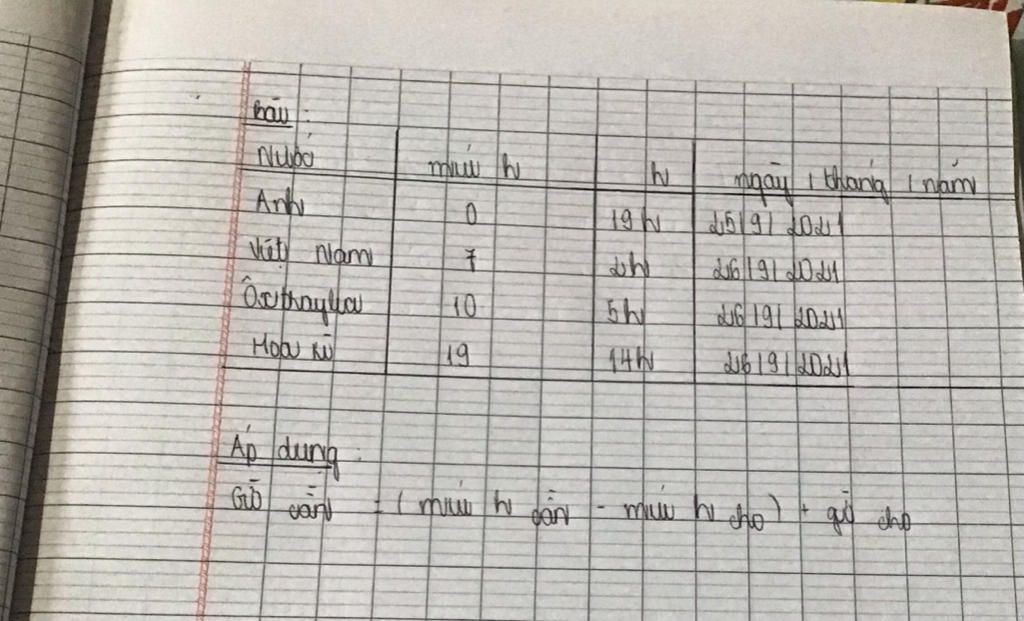 Bài :
Nước múi h h ngày / tháng / năm
Anh 0 19h 25/9/2021
Việt Nam 7 2h 26/9/2021
Ôxtraylia 10 5h 26/9/2021
Hoa kì 19 14h 26/9/2021
Áp dụng :
Giờ cần = (múi h cần - múi h cho) + giờ cho